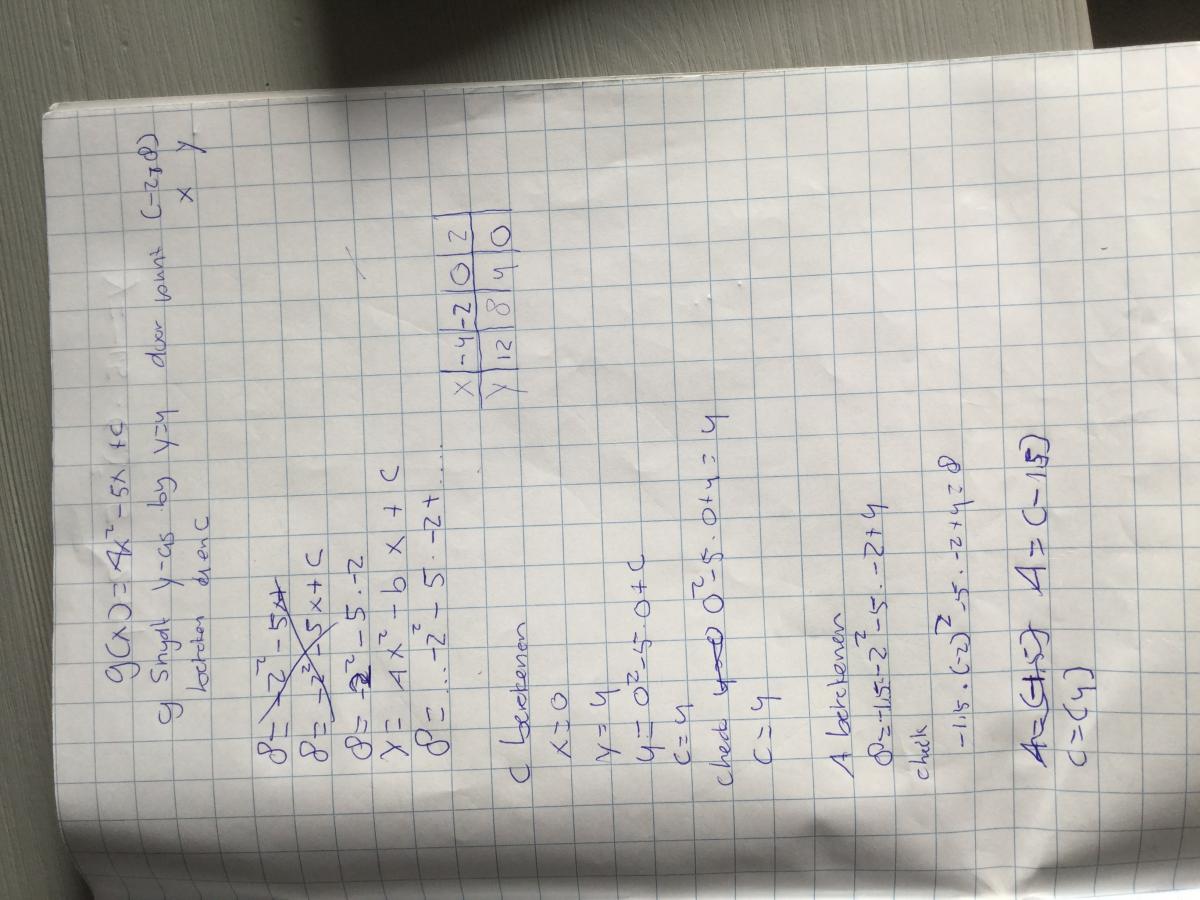 g(x) = Ax² - 5x + c
g Snydt y-as by y=4 door punt (-2,8)
x y
berekenen a en c
8 = -2² - 5x+
8 = -2² - 5x + C
8 = -2² - 5 · -2
y = Ax² - b x + C
8 = ... -2² - 5 · -2 + .....
x | -4 | -2 | 0 | 2
y | 12 | 8 | 4 | 0
C berekenen
x = 0
y = 4
4 = 0² - 5 · 0 + C
C = 4
check 4=0 0² - 5 · 0 + 4 = 4
C = 4
A berekenen
8 = -1.5 · -2² - 5 · -2 + 4
check
-1.5 · (-2)² - 5 · -2 + 4 = 8
A = (-1.5) A = (-1.5)
C = (4)